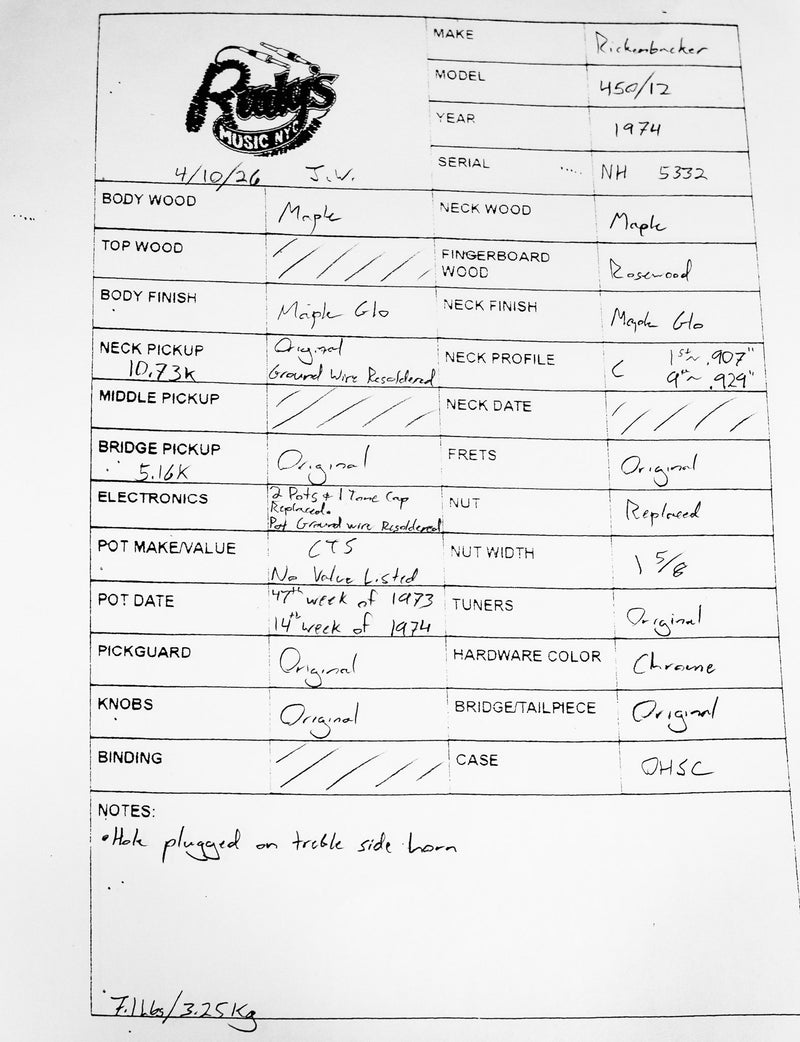 Rudy's
MUSIC NYC
4/10/26 J.W.
MAKE Rickenbacker
MODEL 450/12
YEAR 1974
SERIAL NH 5332
BODY WOOD Maple
NECK WOOD Maple
TOP WOOD
FINGERBOARD WOOD Rosewood
BODY FINISH Maple Glo
NECK FINISH Maple Glo
NECK PICKUP 10.73K
Original
Ground Wire Resoldered
NECK PROFILE C
1st ~ .907"
9th ~ .929"
MIDDLE PICKUP
NECK DATE
BRIDGE PICKUP 5.16K
Original
FRETS Original
ELECTRONICS
2 Pots + 1 Tone Cap
Replaced.
Pot Ground wire Resoldered
NUT Replaced
POT MAKE/VALUE
CTS
No Value Listed
NUT WIDTH 1 5/8
POT DATE
47th week of 1973
14th week of 1974
TUNERS Original
PICKGUARD Original
HARDWARE COLOR Chrome
KNOBS Original
BRIDGE/TAILPIECE Original
BINDING
CASE OHSC
NOTES:
•Hole plugged on treble side horn
7.1Lbs/3.25Kg